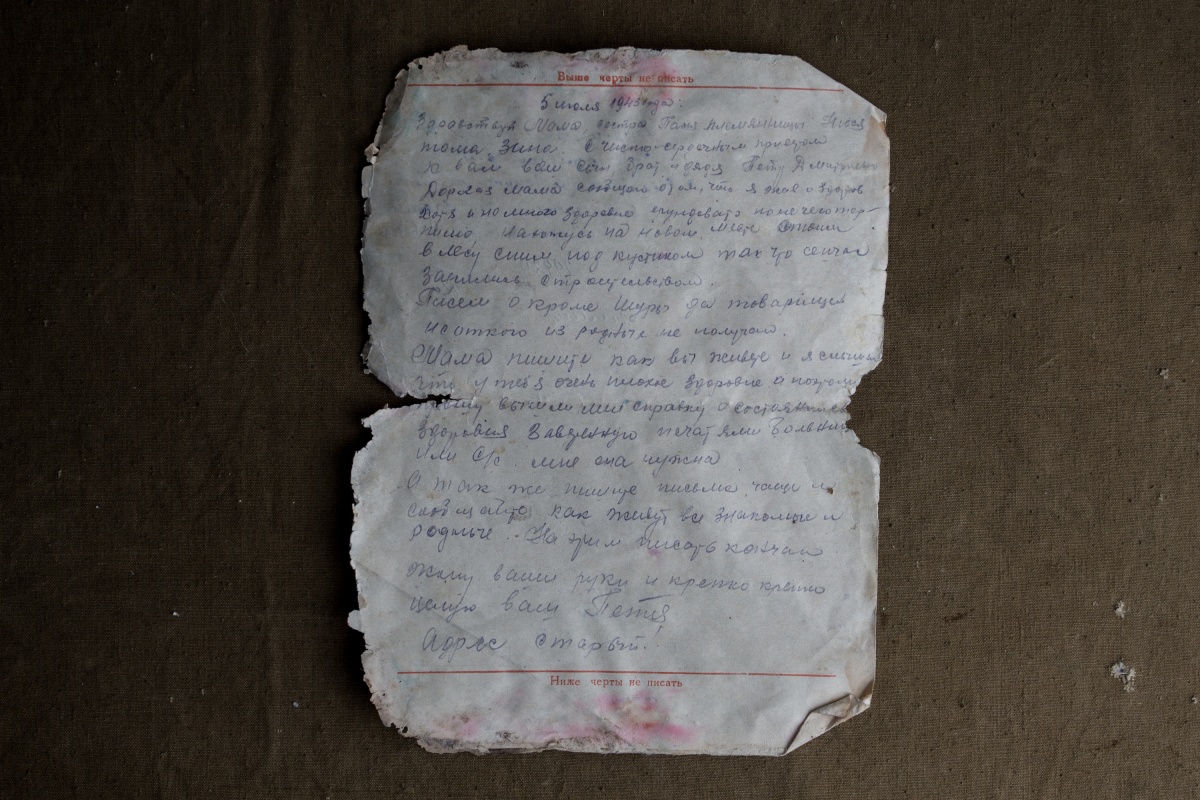 Выше черты не писать
5 июля 1943 года.
Здравствуй Мама, сестра Галя племянницы Нюся
тома Зина. С чисто-сердечным приветом
к вам ваш сын брат и дядя Петр Дмитриевич
Дорогая мама сообщаю о том, что я жив и здоров
Хотя и не много здоровье
нахожусь на новом месте стоим
в лесу спим под кустиком так что сейчас
Занялись строительством.
Писем кроме Шуры да товарищей
из родных не получаю.
Мама пишите как вы живете и я слышал
что у тебя очень плохое здоровье и потому
прошу вышли мне справку о состоянии
здоровия Заверенную печатями Больницы
или С/с мне она нужна
А так же пишите письма чаще и
сообщайте как живут все знакомые и
родные. На этим писать кончаю
Жму ваши руки и крепко крепко
целую ваш Петя
Адрес старый!
Ниже черты не писать